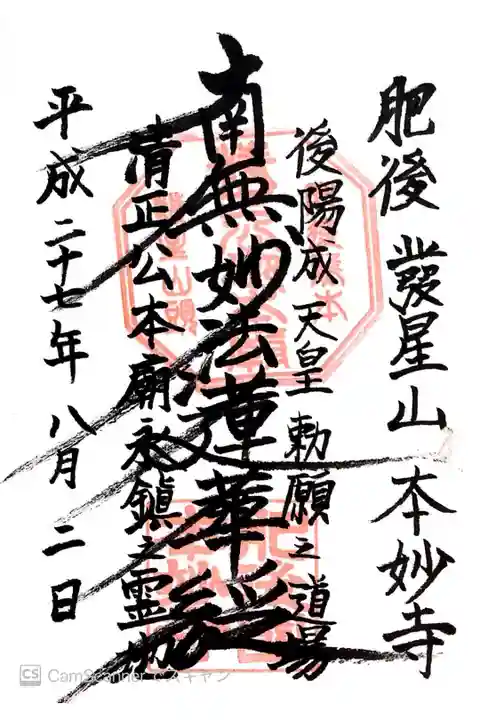 肥後 發星山 本妙寺
後陽成天皇勅願之道場
南無妙法蓮華経
清正公本廟永鎮之霊地
平成二十七年八月二日
CS CamScanner でスキャン